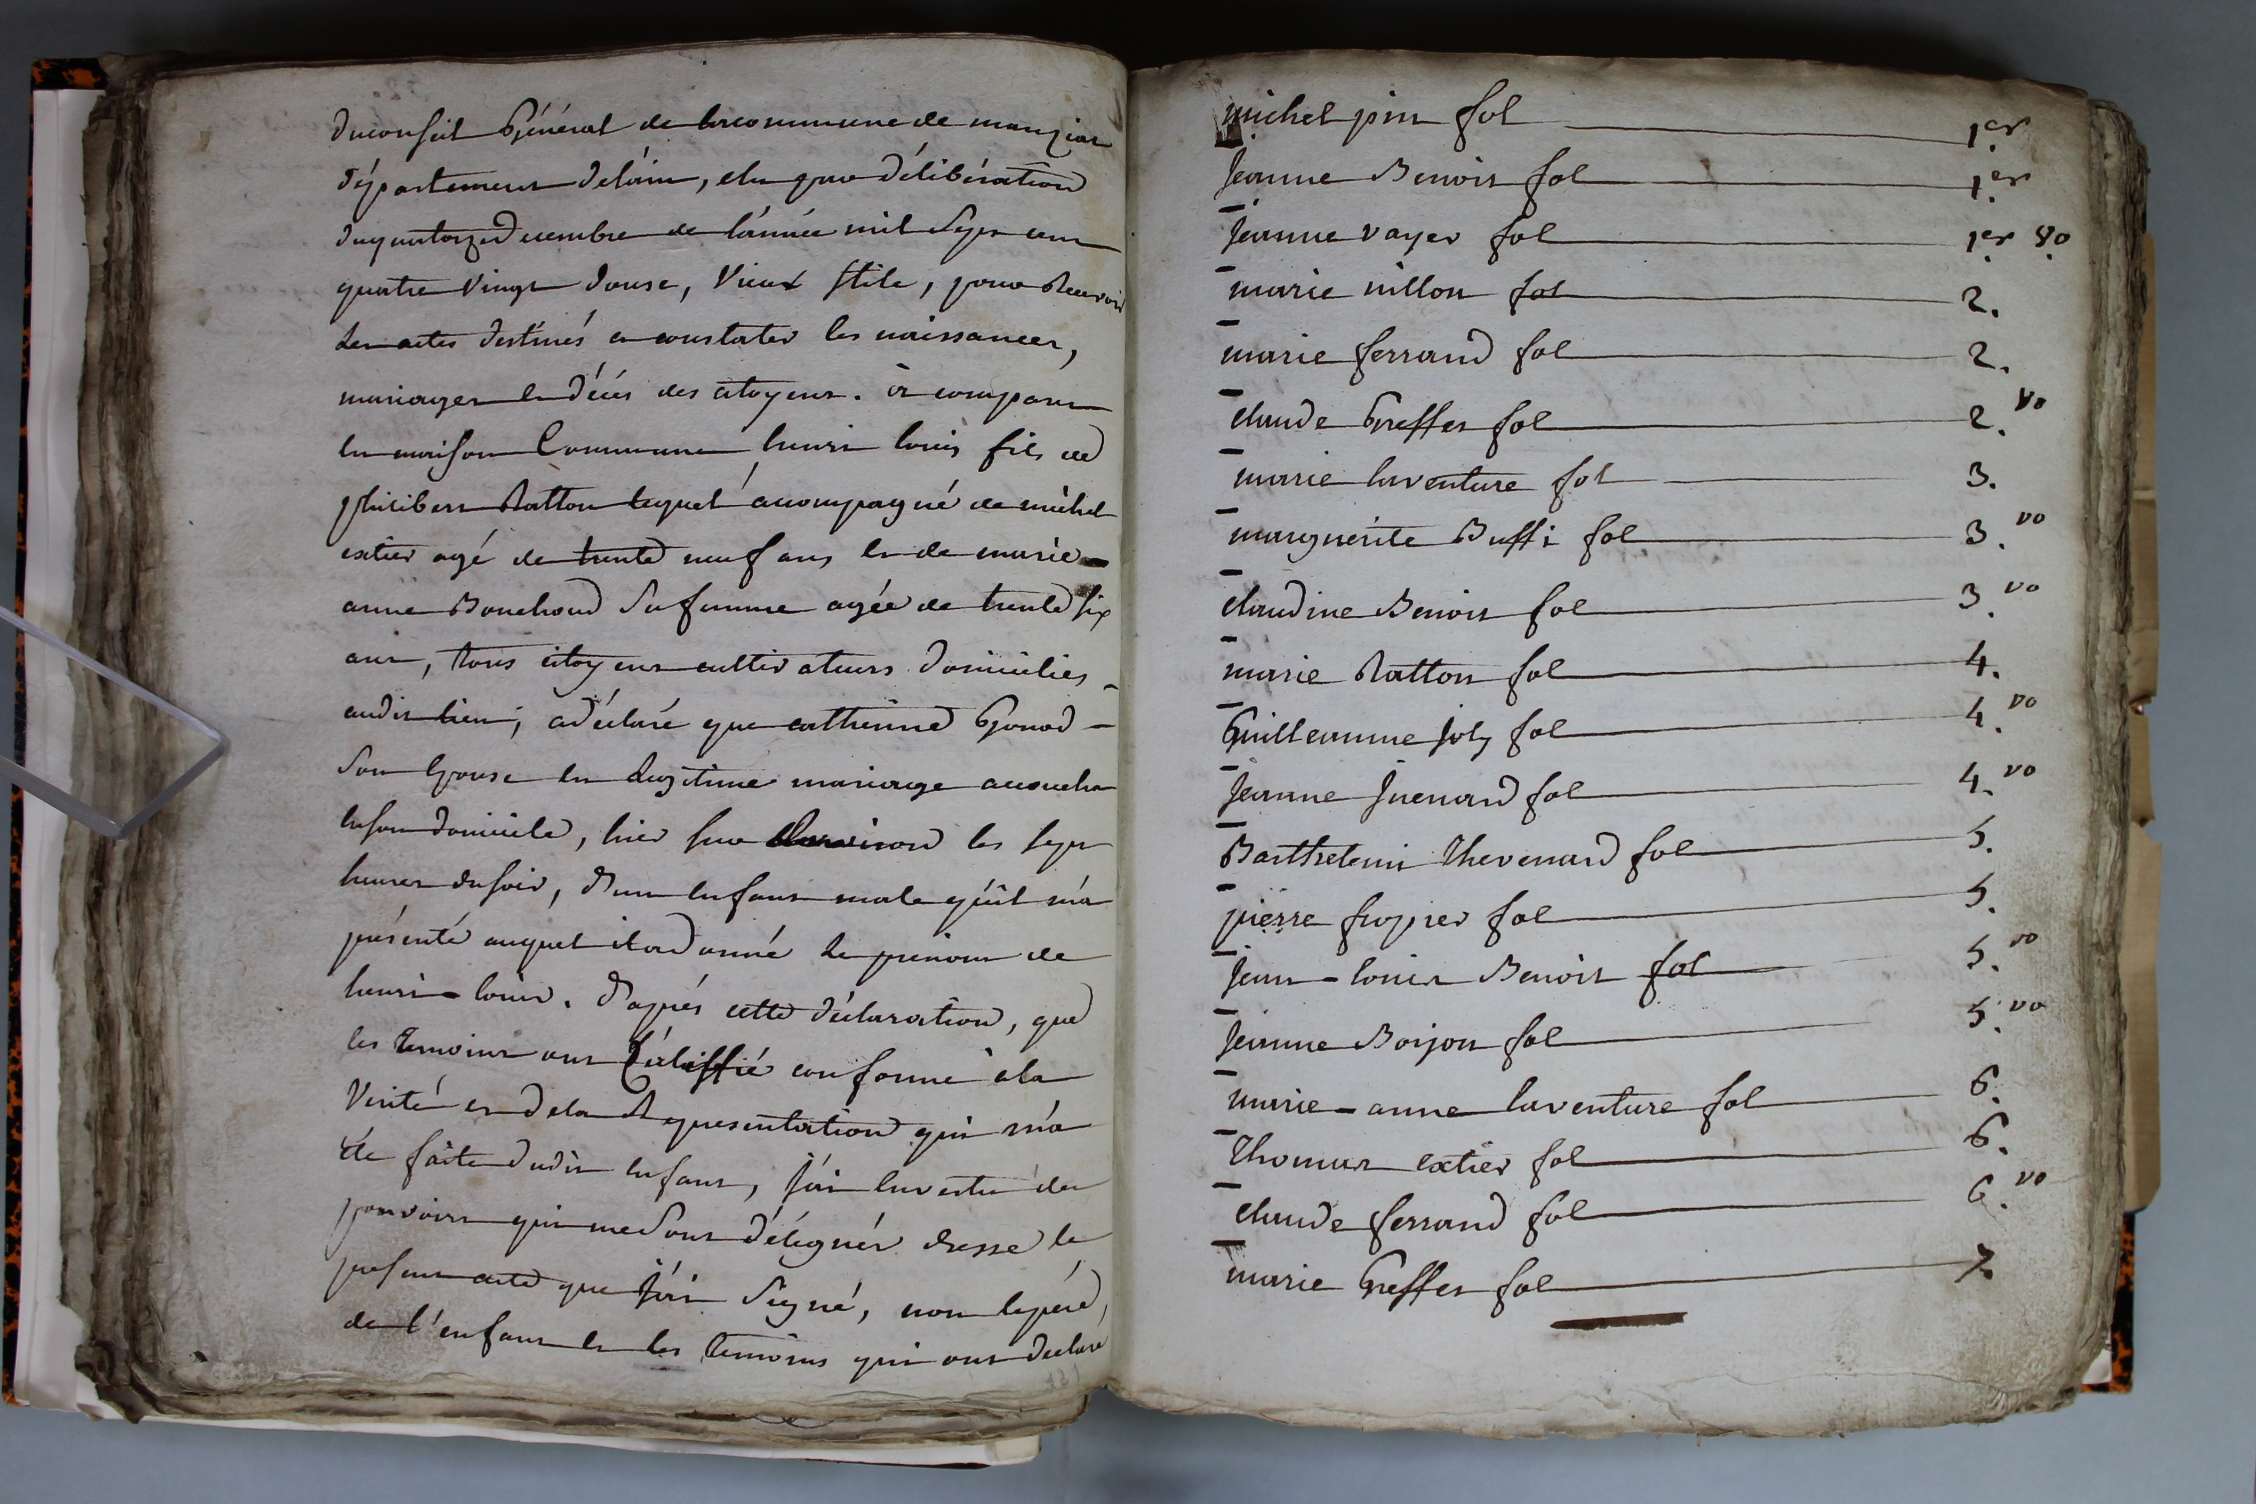 du conseil Général de la commune de manziat
département de lain, elu par délibération
du quatorze decembre de lánnée mil Sept cent
quatre Vingt douse, Vieux stile, pour Recevoir
Les actes destinés a constater les naissances,
mariages et décés des citoyens. à comparu
en maison Commune henri louis fils de
philibert Ratton lequel accompagné de michel
extier agé de trente neuf ans et de marie
anne Bouchoud Sa femme agée de trente six
ans, tous citoyens cultivateurs domicilies
audit lieu, a déclaré que catherine Gonod
Son Epouse en Legitime mariage accoucha
en son domicile, hier sur les sept
heures du soir, dun enfant male qúil má
présenté auquel il a donné Le prénom de
henri-louis. d'aprés cette déclaration, que
les temoins ont conforme à la
Verité et de la Representation qui má
été faite dudit enfant, jái En vertu des
pouvoirs qui me Sont délégués dressé le
present acte que jái Signé, non le pere,
de l'enfant et les temoins qui ont declaré
michel pin fol 1er
Jeanne Benoit fol 1er
Jeanne vayer fol 1er vo
marie nillon fol 2.
marie ferrand fol 2.
claude Greffet fol 2. vo
marie laventure fol 3.
marguerite Buffi fol 3. vo
claudine Benoit fol 3. vo
marie Ratton fol 4.
Guillemine joly fol 4. vo
Jeanne Juenard fol 4. vo
Barthelemi Thevenard fol 5.
pierre fropier fol 5.
Jean-louis Benoit fol 5. vo
Jeanne Boijon fol 5. vo
marie-anne laventure fol 6.
Thomas extier fol 6.
claude ferrand fol 6. vo
marie Greffet fol 7.